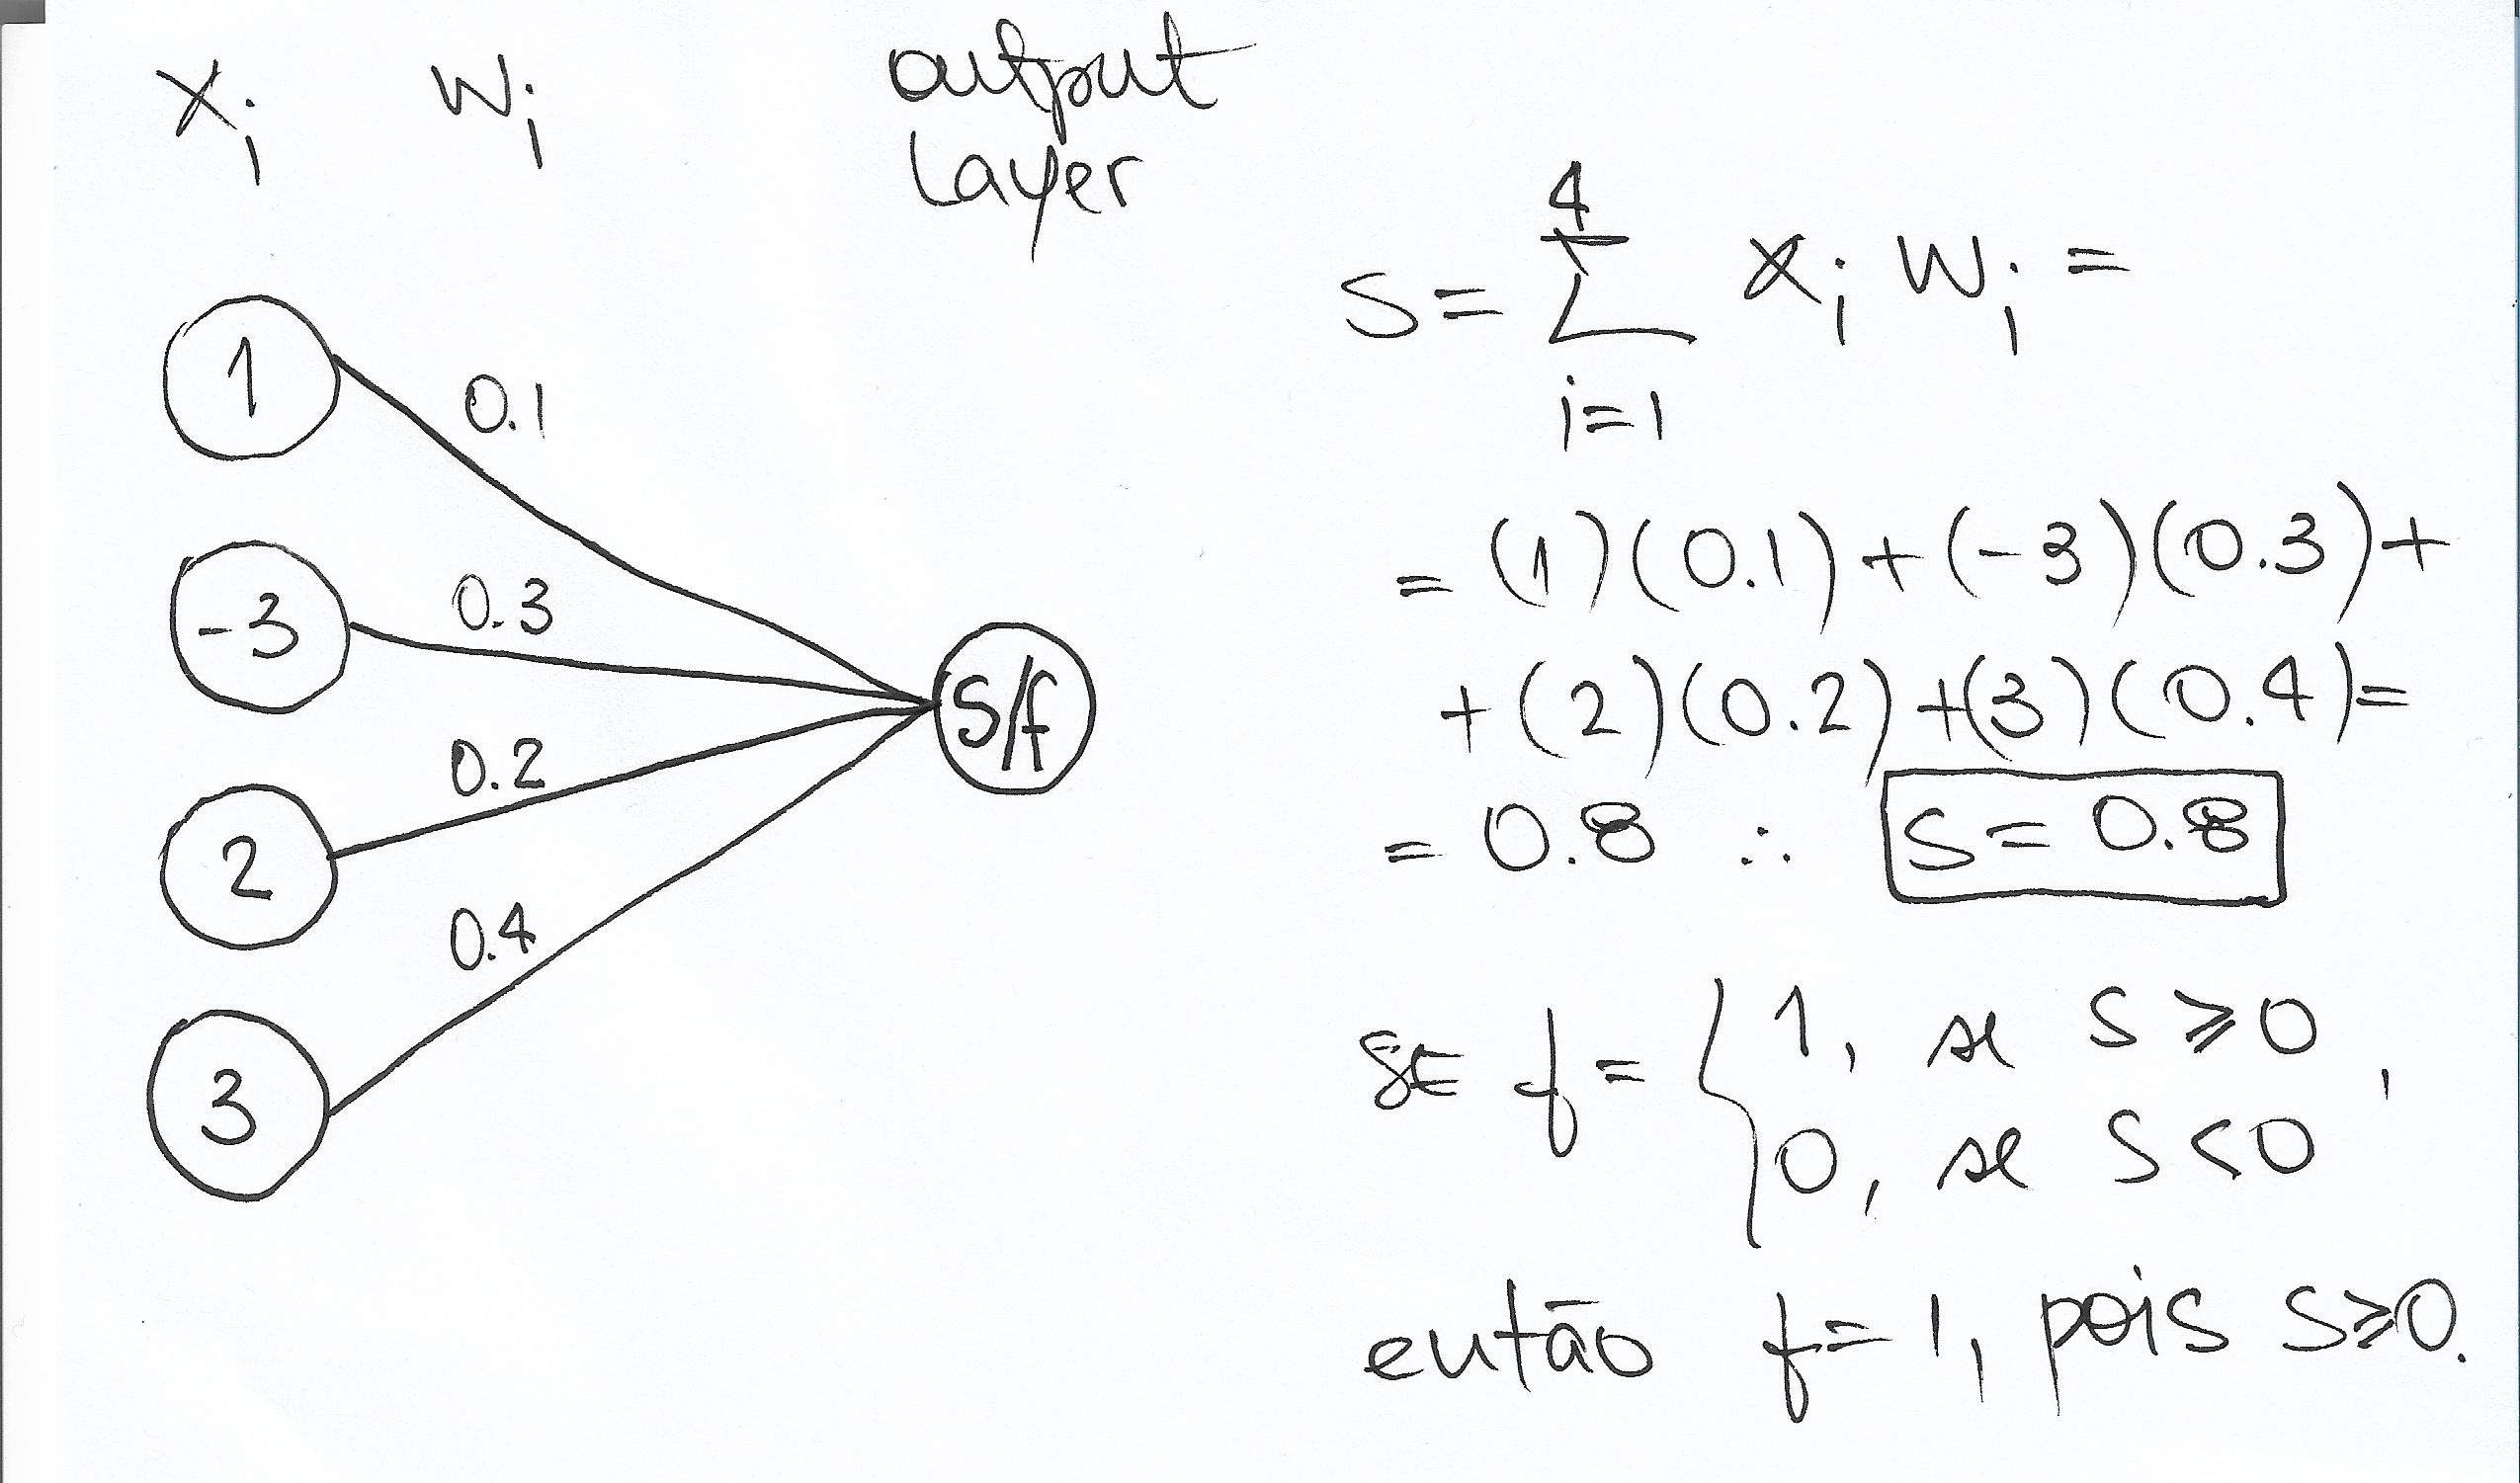 xᵢ wᵢ output
Layer
1
0.1
-3
0.3
2
0.2
3
0.4
S/f
4
S = Σ xᵢ wᵢ =
i=1
= (1)(0.1) + (-3)(0.3) +
+ (2)(0.2) + (3)(0.4) =
= 0.8 ∴ S = 0.8
SE f = { 1, se S ⩾ 0
0, se S < 0 ,
então f = 1, pois S ⩾ 0.